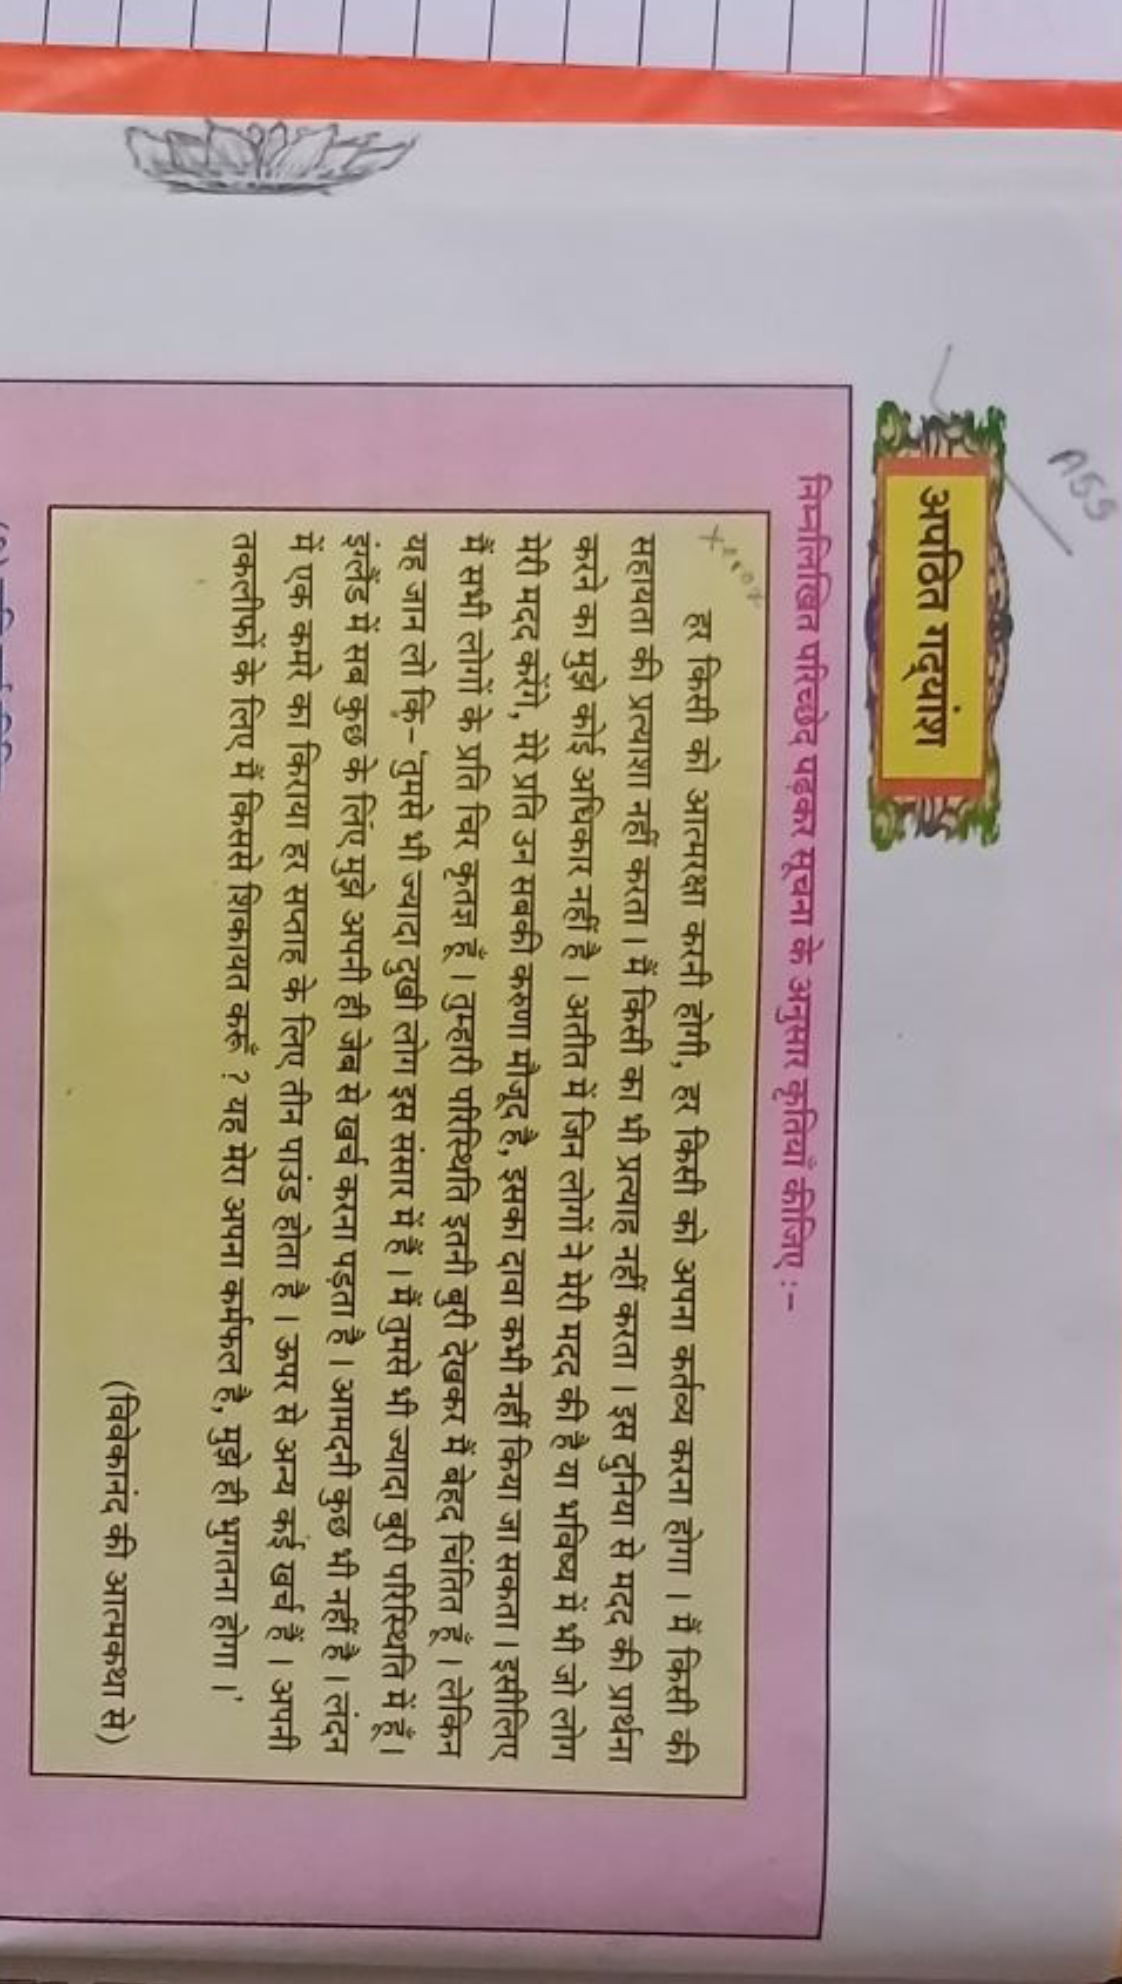 ASS
अपठित गद्यांश
निम्नलिखित परिच्छेद पढ़कर सूचना के अनुसार कृतियाँ कीजिए :-
हर किसी को आत्मरक्षा करनी होगी, हर किसी को अपना कर्तव्य करना होगा । मैं किसी की
सहायता की प्रत्याशा नहीं करता । मैं किसी का भी प्रत्याह नहीं करता । इस दुनिया से मदद की प्रार्थना
करने का मुझे कोई अधिकार नहीं है । अतीत में जिन लोगों ने मेरी मदद की है या भविष्य में भी जो लोग
मेरी मदद करेंगे, मेरे प्रति उन सबकी करुणा मौजूद है, इसका दावा कभी नहीं किया जा सकता । इसीलिए
मैं सभी लोगों के प्रति चिर कृतज्ञ हूँ । तुम्हारी परिस्थिति इतनी बुरी देखकर मैं बेहद चिंतित हूँ । लेकिन
यह जान लो कि- 'तुमसे भी ज्यादा दुखी लोग इस संसार में हैं । मैं तुमसे भी ज्यादा बुरी परिस्थिति में हूँ ।
इंग्लैंड में सब कुछ के लिए मुझे अपनी ही जेब से खर्च करना पड़ता है । आमदनी कुछ भी नहीं है । लंदन
में एक कमरे का किराया हर सप्ताह के लिए तीन पाउंड होता है । ऊपर से अन्य कई खर्च हैं । अपनी
तकलीफों के लिए मैं किससे शिकायत करूँ ? यह मेरा अपना कर्मफल है, मुझे ही भुगतना होगा ।'
(विवेकानंद की आत्मकथा से)